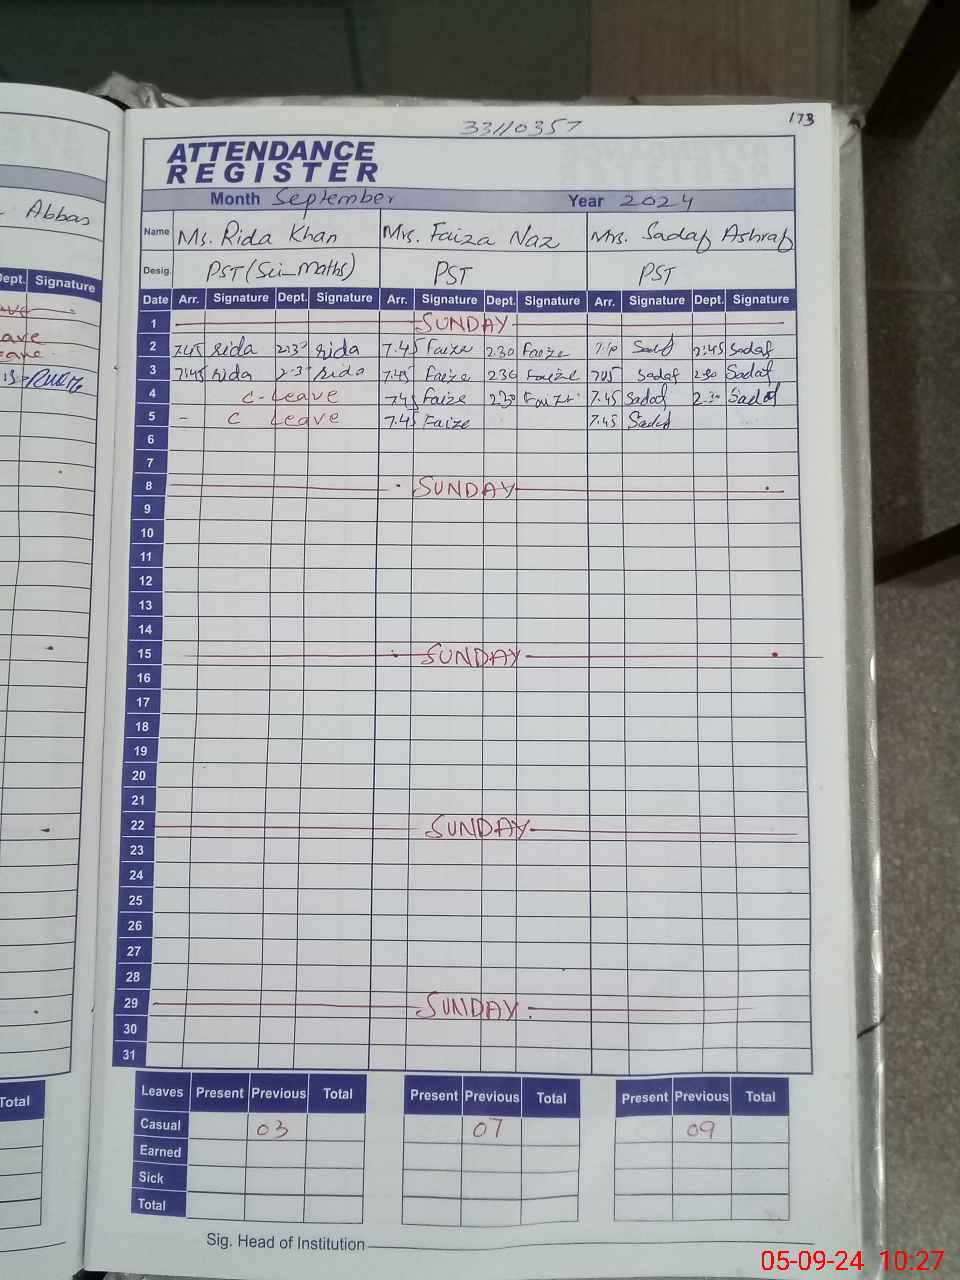 33110357
173
ATTENDANCE
REGISTER
Month September Year 2024
Name Ms. Rida Khan Mrs. Faiza Naz Mrs. Sadaf Ashraf
Desig. PST (Sci-Maths) PST PST
Date Arr. Signature Dept. Signature Arr. Signature Dept. Signature Arr. Signature Dept. Signature
1 SUNDAY
2 7:45 rida 2:30 rida 7.45 Faiza 2.30 Faiza Sadaf 2:45 Sadaf
3 7:45 rida rida 7.45 Faiza 2.30 Faiza 7.45 Sadaf 2.30 Sadaf
4 C-Leave 7.45 Faiza 2.30 Faiza 7.45 Sadaf 2.30 Sadaf
5 - C Leave 7.45 Faiza 7.45 Sadaf
6
7
8 SUNDAY
9
10
11
12
13
14
15 SUNDAY
16
17
18
19
20
21
22 SUNDAY
23
24
25
26
27
28
29 SUNDAY
30
31
Leaves Present Previous Total Present Previous Total Present Previous Total
Casual 03 07 09
Earned
Sick
Total
Sig. Head of Institution
Abbas
Dept. Signature
Total
05-09-24 10:27